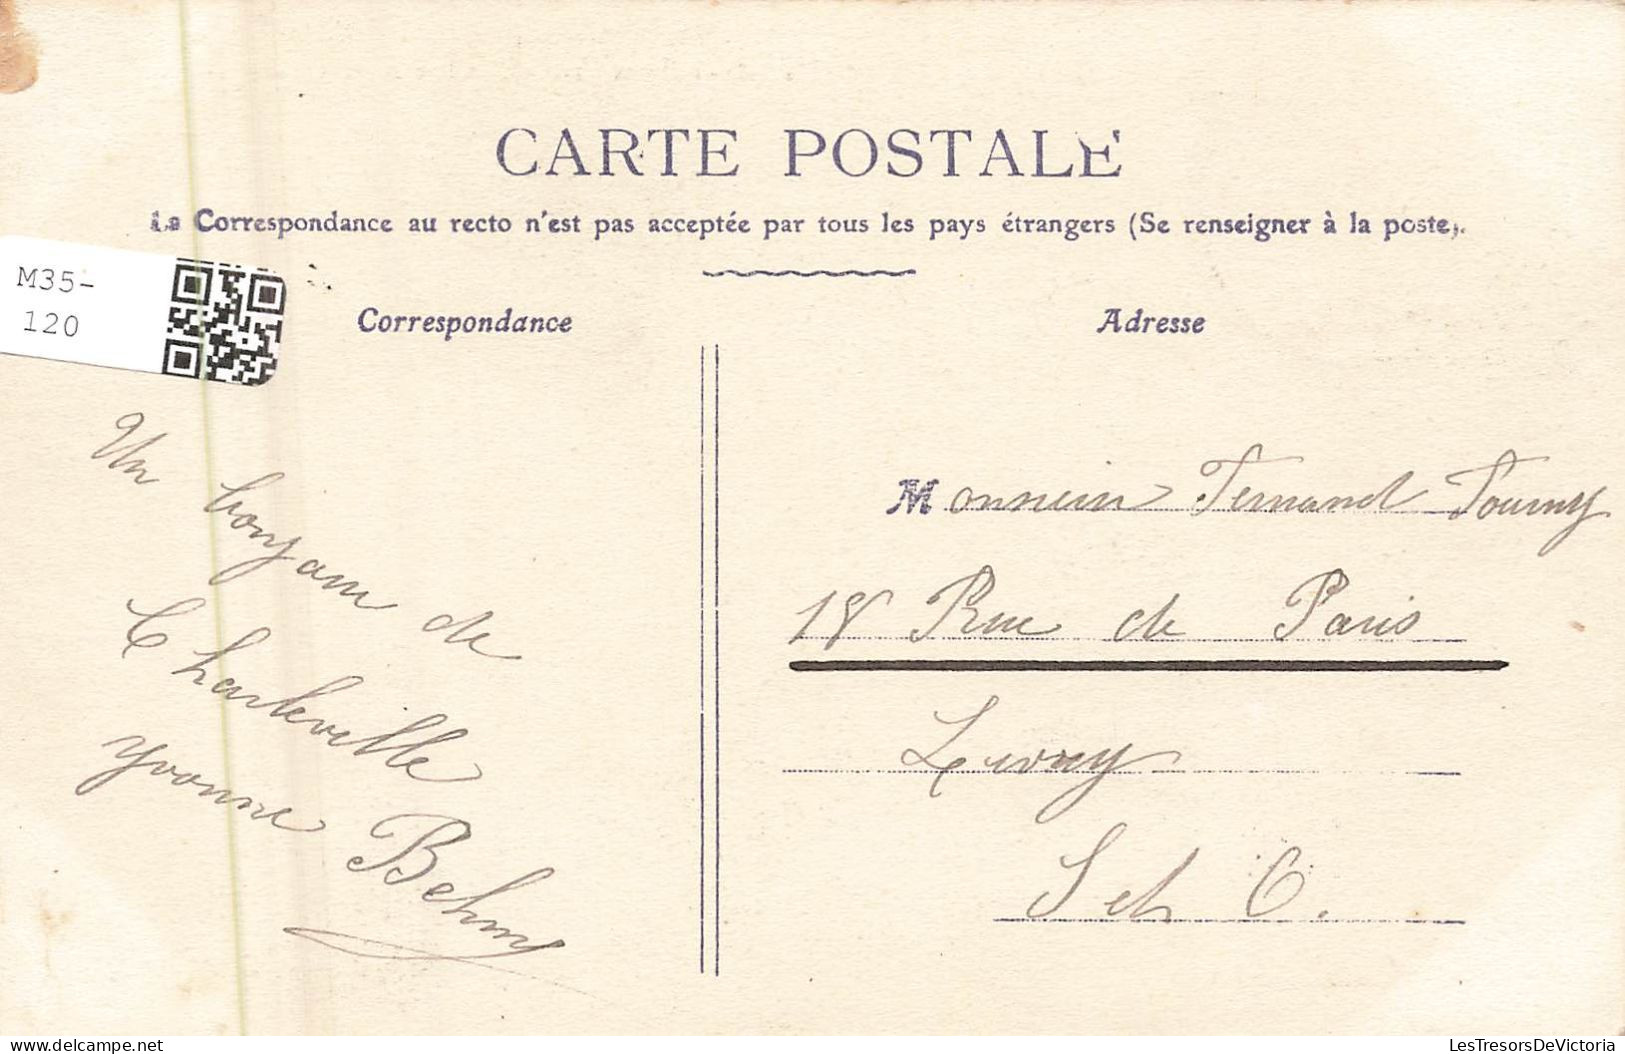 CARTE POSTALE
La Correspondance au recto n'est pas acceptée par tous les pays étrangers (Se renseigner à la poste).
M35-
120
Correspondance
Un bonjour de
Charleville
Yvonne Behny
Adresse
Monsieur Fernand Tourny
18 Rue de Paris
Livry
S et O.
delcampe.net
LesTresorsDeVictoria